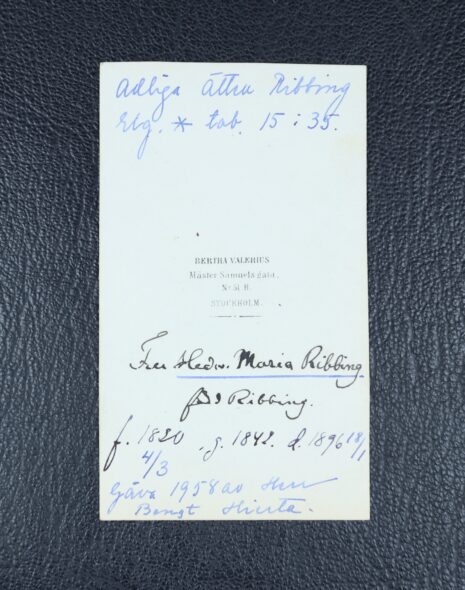 Adliga Ätten Ribbing
Elg. * tab. 15 : 35.
BERTHA VALERIUS
Mäster Samuels gata,
No 51 B.
STOCKHOLM.
Fru Hedv. Maria Ribbing
Ribbing.
f. 1820 4/3 . g. 1842. d. 1896 18/1
Gåva 1958 av Herr
Bengt